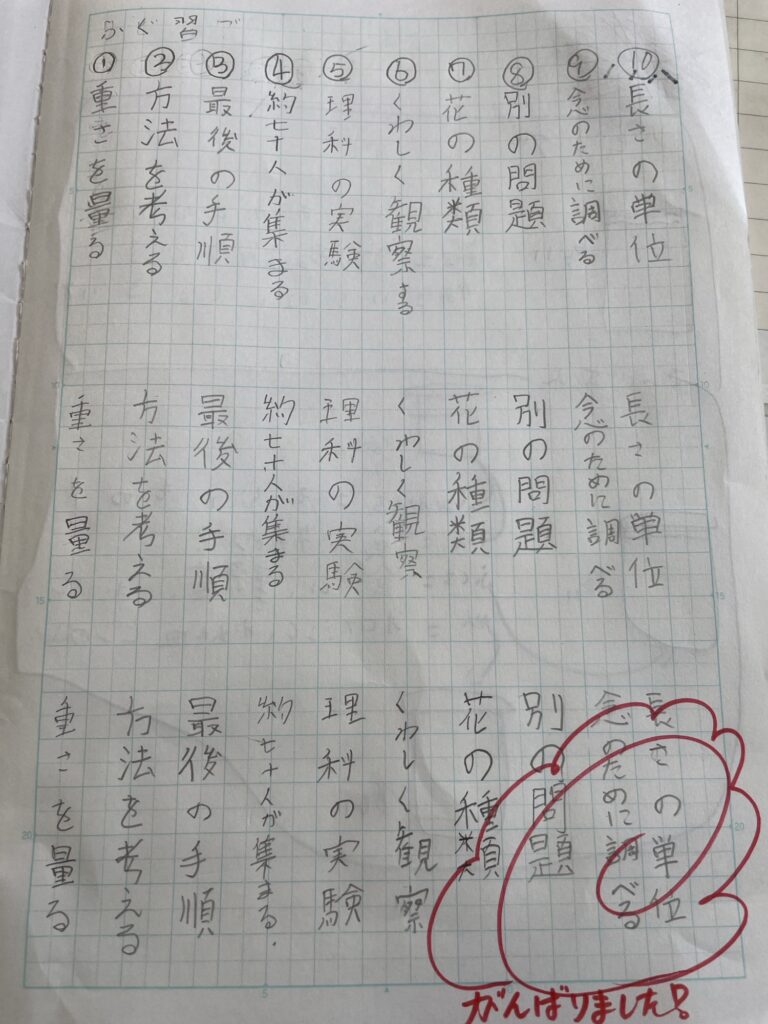 ふく習
①重さを量る
②方法を考える
③最後の手順
④約七十人が集まる
⑤理科の実験
⑥くわしく観察する
⑦花の種類
⑧別の問題
⑨念のために調べる
⑩長さの単位
重さを量る
方法を考える
最後の手順
約七十人が集まる
理科の実験
くわしく観察
花の種類
別の問題
念のために調べる
長さの単位
重さを量る
方法を考える
最後の手順
約七十人が集まる.
理科の実験
くわしく観察
花の種類
別の問題
念のために調べる
長さの単位
がんばりました!